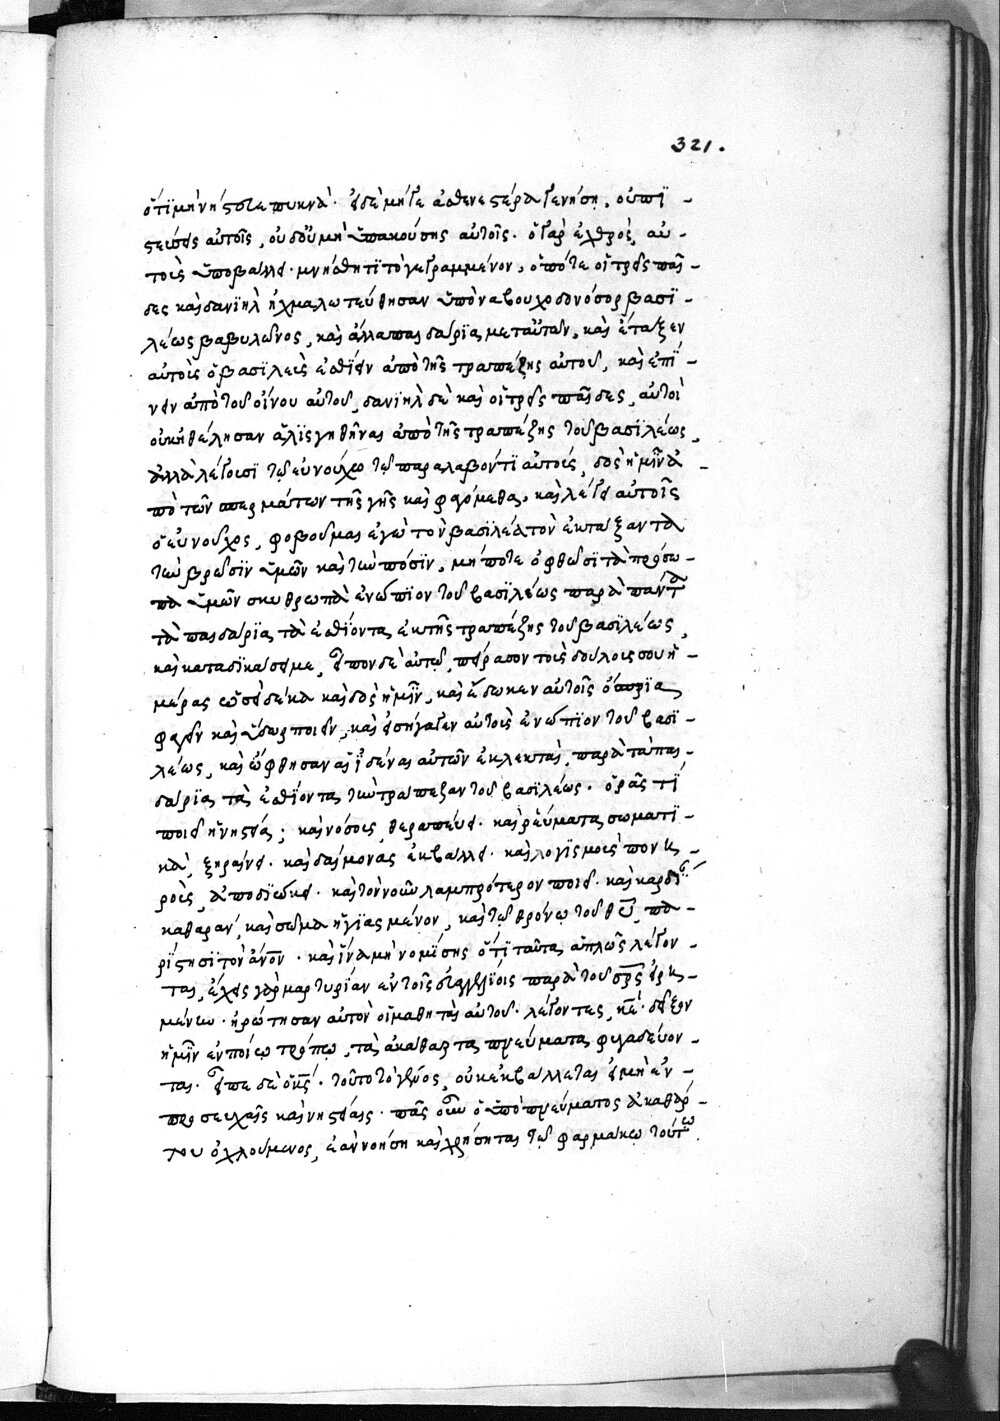 321.
ὅτι μὴ νήστευε πυκνὰ· ἵνα μή σε ἀσθενεστέρα γενήση, οὐ πι-
στεύσεις αὐτοῖς, οὐδ' οὐ μὴ ὑπακούσης αὐτοῖς· ὁ γὰρ ἐχθρὸς, αὐ-
τοὺς ὑποβάλλει· μνήσθητι τὸ γεγραμμένον, ὁπότε οἱ τρεῖς παῖ-
δες καὶ δανιὴλ ἠχμαλωτεύθησαν ὑπὸ ναβουχοδονόσορ βασι-
λέως βαβυλῶνος, καὶ ἄλλα παιδάρια μετ' αὐτῶν, καὶ ἔταξεν
αὐτοὺς ὁ βασιλεὺς ἐσθίειν ἀπὸ τῆς τραπέζης αὐτοῦ, καὶ ἐπί-
νειν ἀπὸ τοῦ οἴνου αὐτοῦ, δανιὴλ δὲ καὶ οἱ τρεῖς παῖδες, αὐτοὶ
οὐκ ἠθέλησαν ἀλισγηθῆναι ἀπὸ τῆς τραπέζης τοῦ βασιλέως,
ἀλλὰ λέγουσι τῷ εὐνούχω τῷ παραλαβόντι αὐτοὺς, δὸς ἡμῖν ἀ-
πὸ τῶν σπερμάτων τῆς γῆς καὶ φαγόμεθα, καὶ λέγει αὐτοῖς
ὁ εὐνοῦχος, φοβοῦμαι ἐγὼ τὸν βασιλέα τὸν ἐκτάξαντα
τὴν βρῶσιν ὑμῶν καὶ τὴν πόσιν, μήποτε ὀφθῶσι τὰ πρόσω-
πα ὑμῶν σκυθρωπὰ ἐνώπιον τοῦ βασιλέως παρὰ πάντα
τὰ παιδάρια τὰ ἐσθίοντα ἐκ τῆς τραπέζης τοῦ βασιλέως,
καὶ καταδικάσει με, εἶπον δὲ αὐτῷ, πείρασον τοὺς δούλους σου ἡ-
μέρας ὡσεὶ δέκα καὶ δὸς ἡμῖν, καὶ ἔδωκεν αὐτοῖς ὄσπρια
φαγεῖν καὶ ὕδωρ ποιεῖν, καὶ εἰσήγαγεν αὐτοὺς ἐνώπιον τοῦ βασι-
λέως, καὶ ὤφθησαν αἱ ἰδέναι αὐτῶν ἐκλεκταὶ, παρὰ τὰ παι-
δάρια τὰ ἐσθίοντα τὴν τράπεζαν τοῦ βασιλέως· ὁρᾶς τί
ποιεῖ ἡ νηστεία; καὶ νόσους, θεραπεύει· καὶ ῥεύματα σωματι-
κὰ, ξηραίνει· καὶ δαίμονας ἐκβάλλει· καὶ λογισμοὺς πονη-
ροὺς, ἀποδιώκει· καὶ τὸν νοῦν λαμπρότερον ποιεῖ· καὶ καρδίαν
καθαρὰν, καὶ σῶμα ἡγιασμένον, καὶ τῷ θρόνω τοῦ θῦ, πα-
ρίστησι τὸν ἄνον· καὶ ἵνα μὴ νομίσης ὅτι ταῦτα ἁπλῶς λέγον-
ται, ἔχεις γὰρ μαρτυρίαν ἐν τοῖς εὐαγγελίοις παρὰ τοῦ σρς εἰρη-
μένην· ἠρώτησαν αὐτὸν οἱ μαθηταὶ αὐτοῦ· λέγοντες, κε· δεῖξον
ἡμῖν ἐν ποίω τρόπω, τὰ ἀκάθαρτα πνεύματα φυγαδεύον-
ται· εἶπε δὲ ὁ κς· τοῦτο τὸ γένος, οὐκ ἐκβάλλεται εἰ μὴ ἐν
προσευχαῖς καὶ νηστείαις· πᾶς οὖν ὁ ὑπὸ πνεύματος ἀκαθάρ-
του ὀχλούμενος, ἐὰν νοήση καὶ χρήσηται τῷ φαρμάκω τούτω